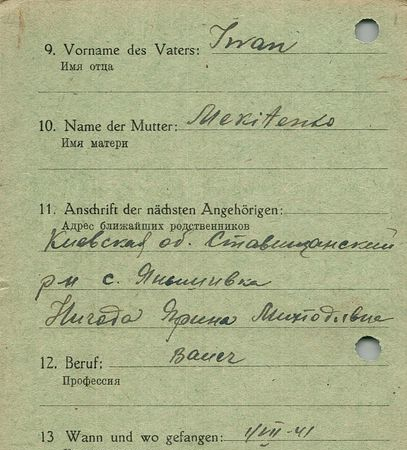 9. Vorname des Vaters: Iwan
Имя отца
10. Name der Mutter: Mekitenko
Имя матери
11. Anschrift der nächsten Angehörigen:
Адрес ближайших родственников
Киевская об. Ставищанский
р-н с.
Ярина
12. Beruf: Bauer
Профессия
13 Wann und wo gefangen: VIII-41